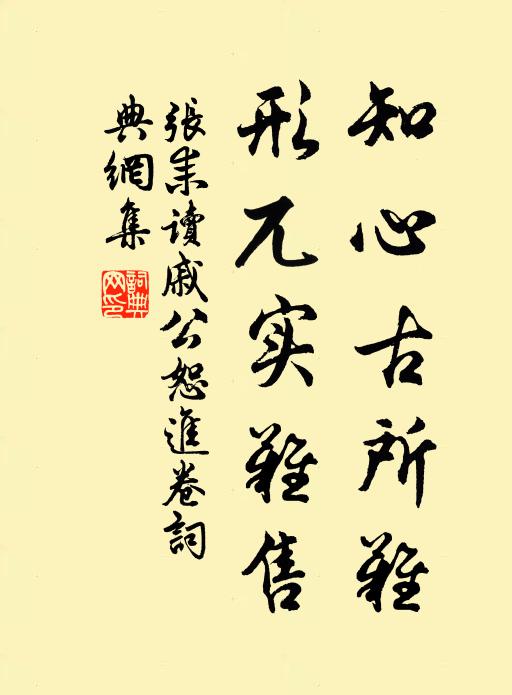 知心古所難
形兀实難售
張耒讀戚公恕進卷詞
典網集
詞典
网印